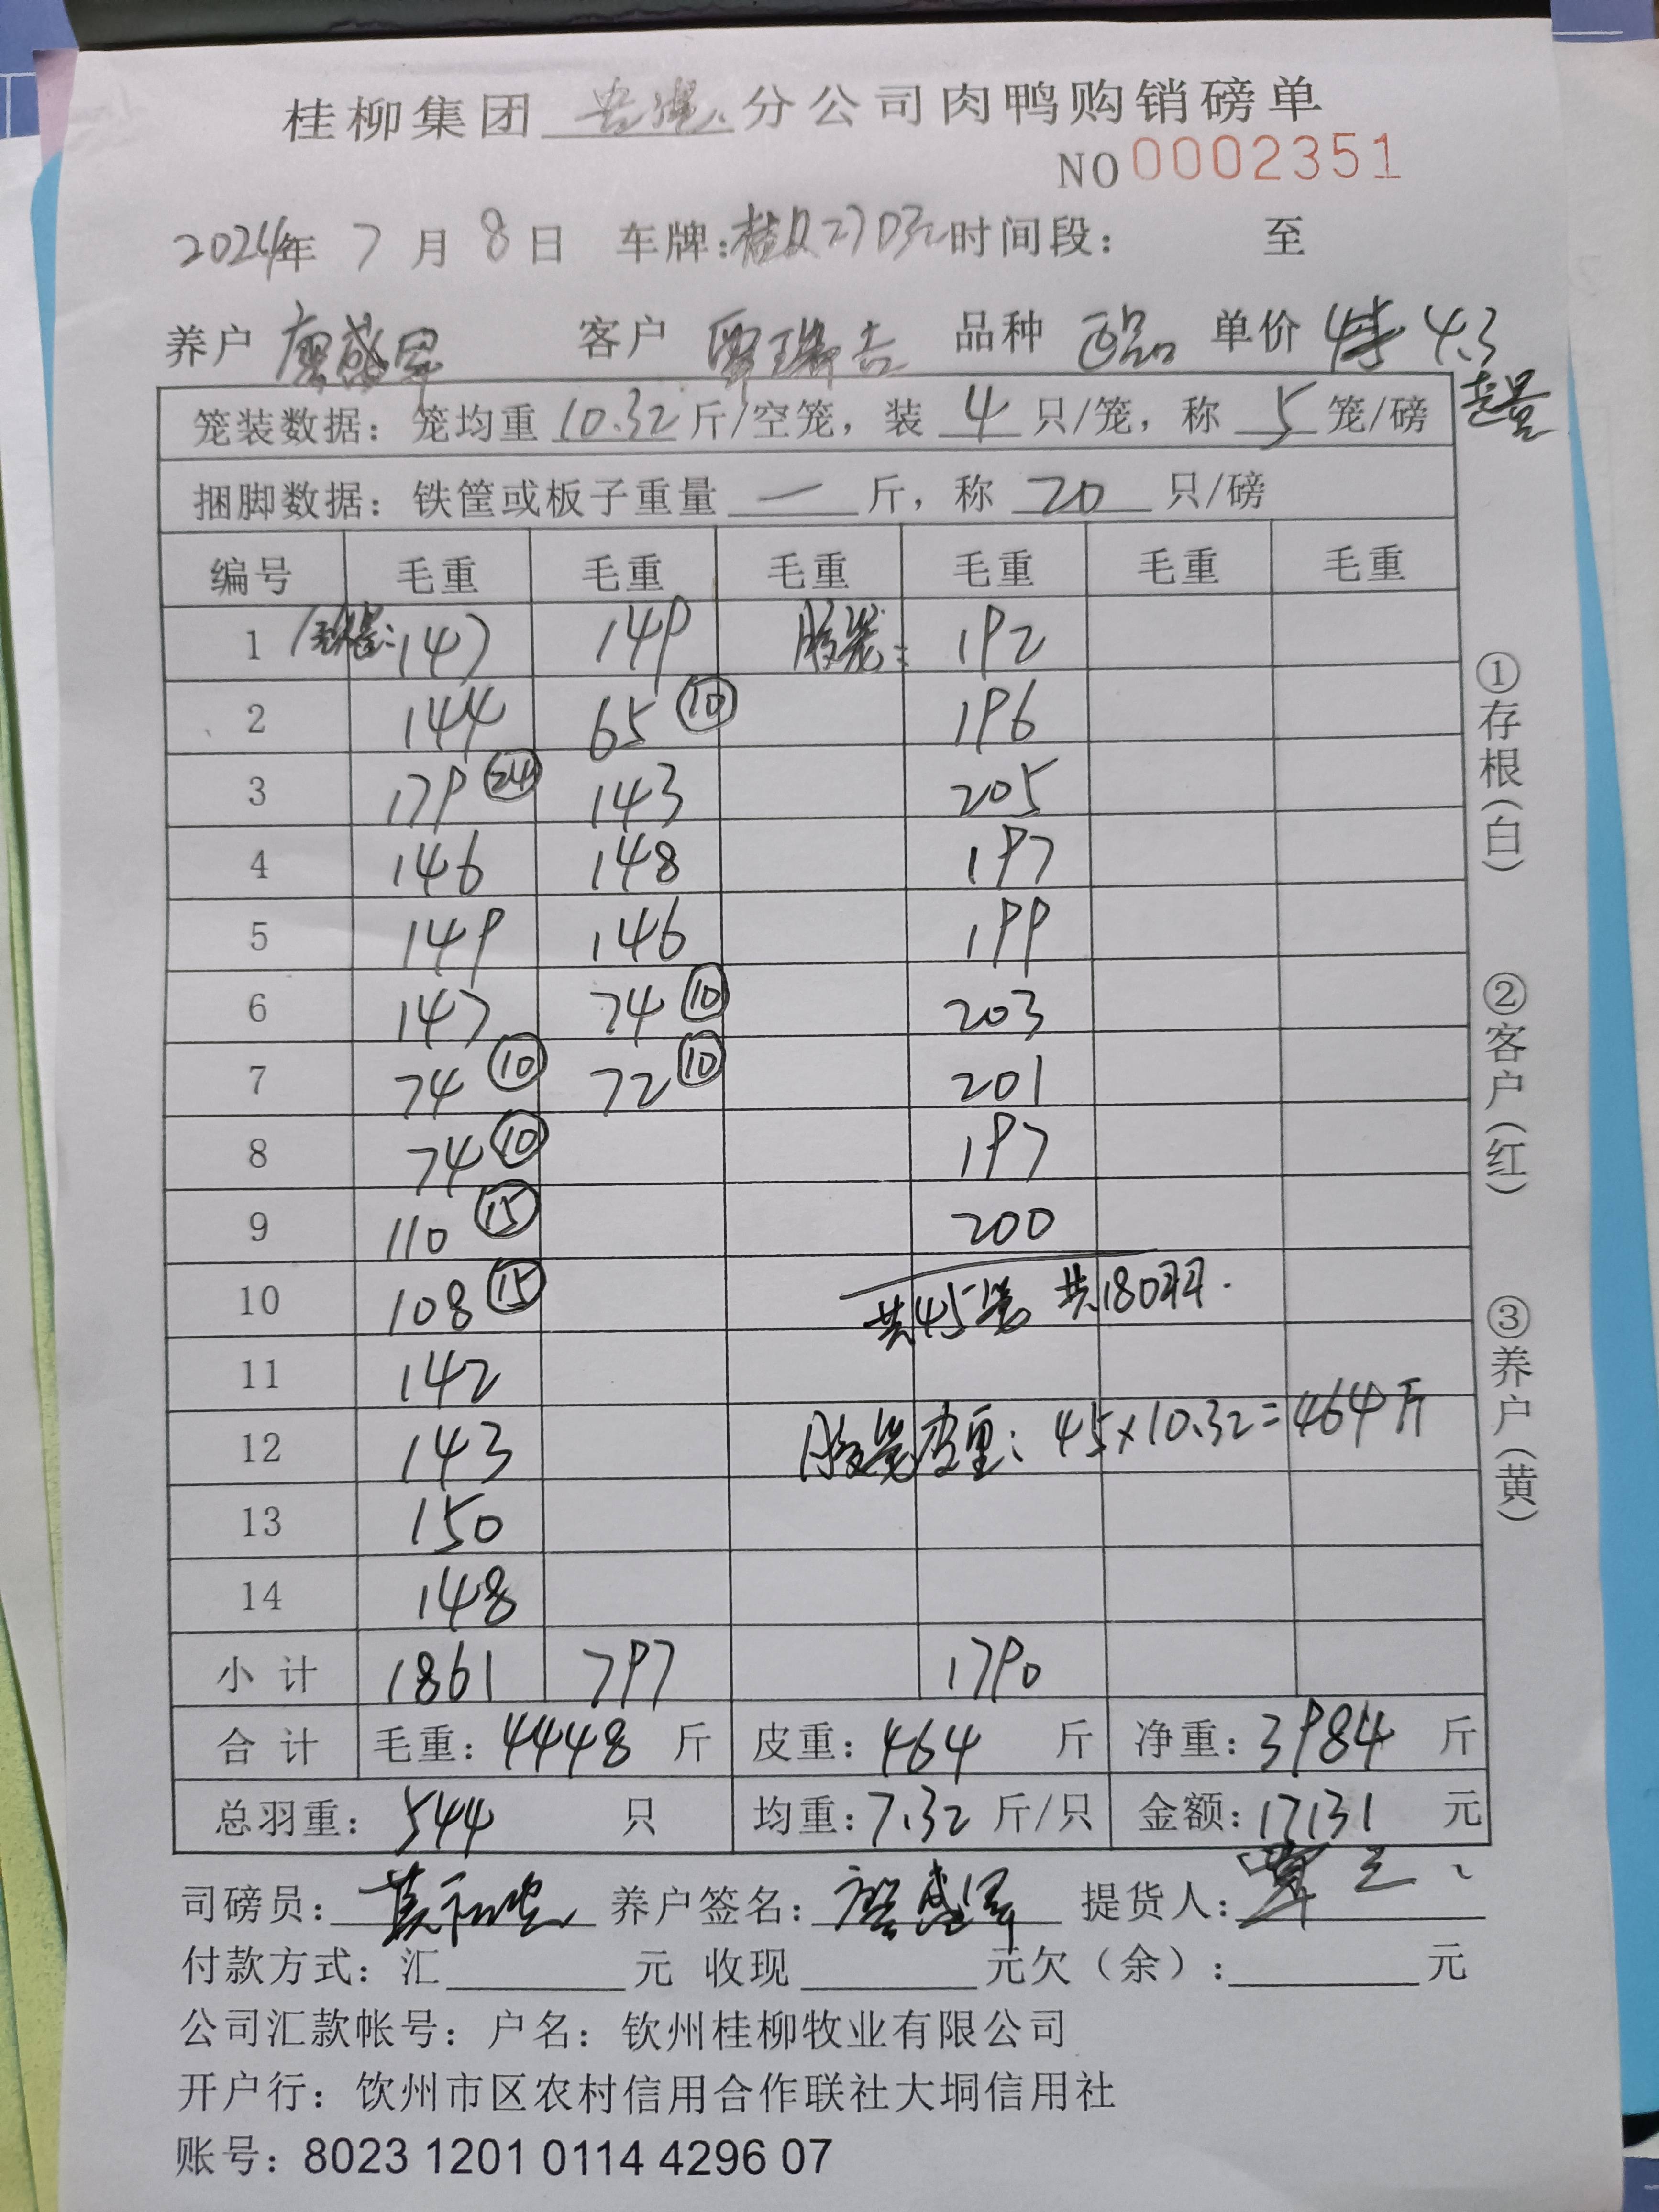 桂柳集团 分公司肉鸭购销磅单
NO 0002351
2024年 7 月 8 日 车牌: 时间段: 至
养户 客户 覃瑞吉 品种 单价 特 4.3
笼装数据: 笼均重 10.32 斤/空笼, 装 4 只/笼, 称 5 笼/磅
捆脚数据: 铁筐或板子重量 一 斤, 称 20 只/磅
编号 毛重 毛重 毛重 毛重 毛重 毛重
1 147 149 胶笼: 192
2 144 65 ⑩ 196
3 179 24 143 205
4 146 148 197
5 149 146 199
6 147 74 ⑩ 203
7 74 ⑩ 72 ⑩ 201
8 74 ⑩ 197
9 110 ⑮ 200
10 108 ⑮ 共45笼 共180羽.
11 142
12 143 胶笼皮重: 45×10.32=464斤
13 150
14 148
小计 1861 797 1790
合计 毛重: 4448 斤 皮重: 464 斤 净重: 3984 斤
总羽重: 544 只 均重: 7.32 斤/只 金额: 17131 元
司磅员: 养户签名: 提货人: 覃
付款方式: 汇 元 收现 元欠(余): 元
公司汇款帐号: 户名: 钦州桂柳牧业有限公司
开户行: 钦州市区农村信用合作联社大垌信用社
账号: 8023 1201 0114 4296 07
①存根(白)
②客户(红)
③养户(黄)